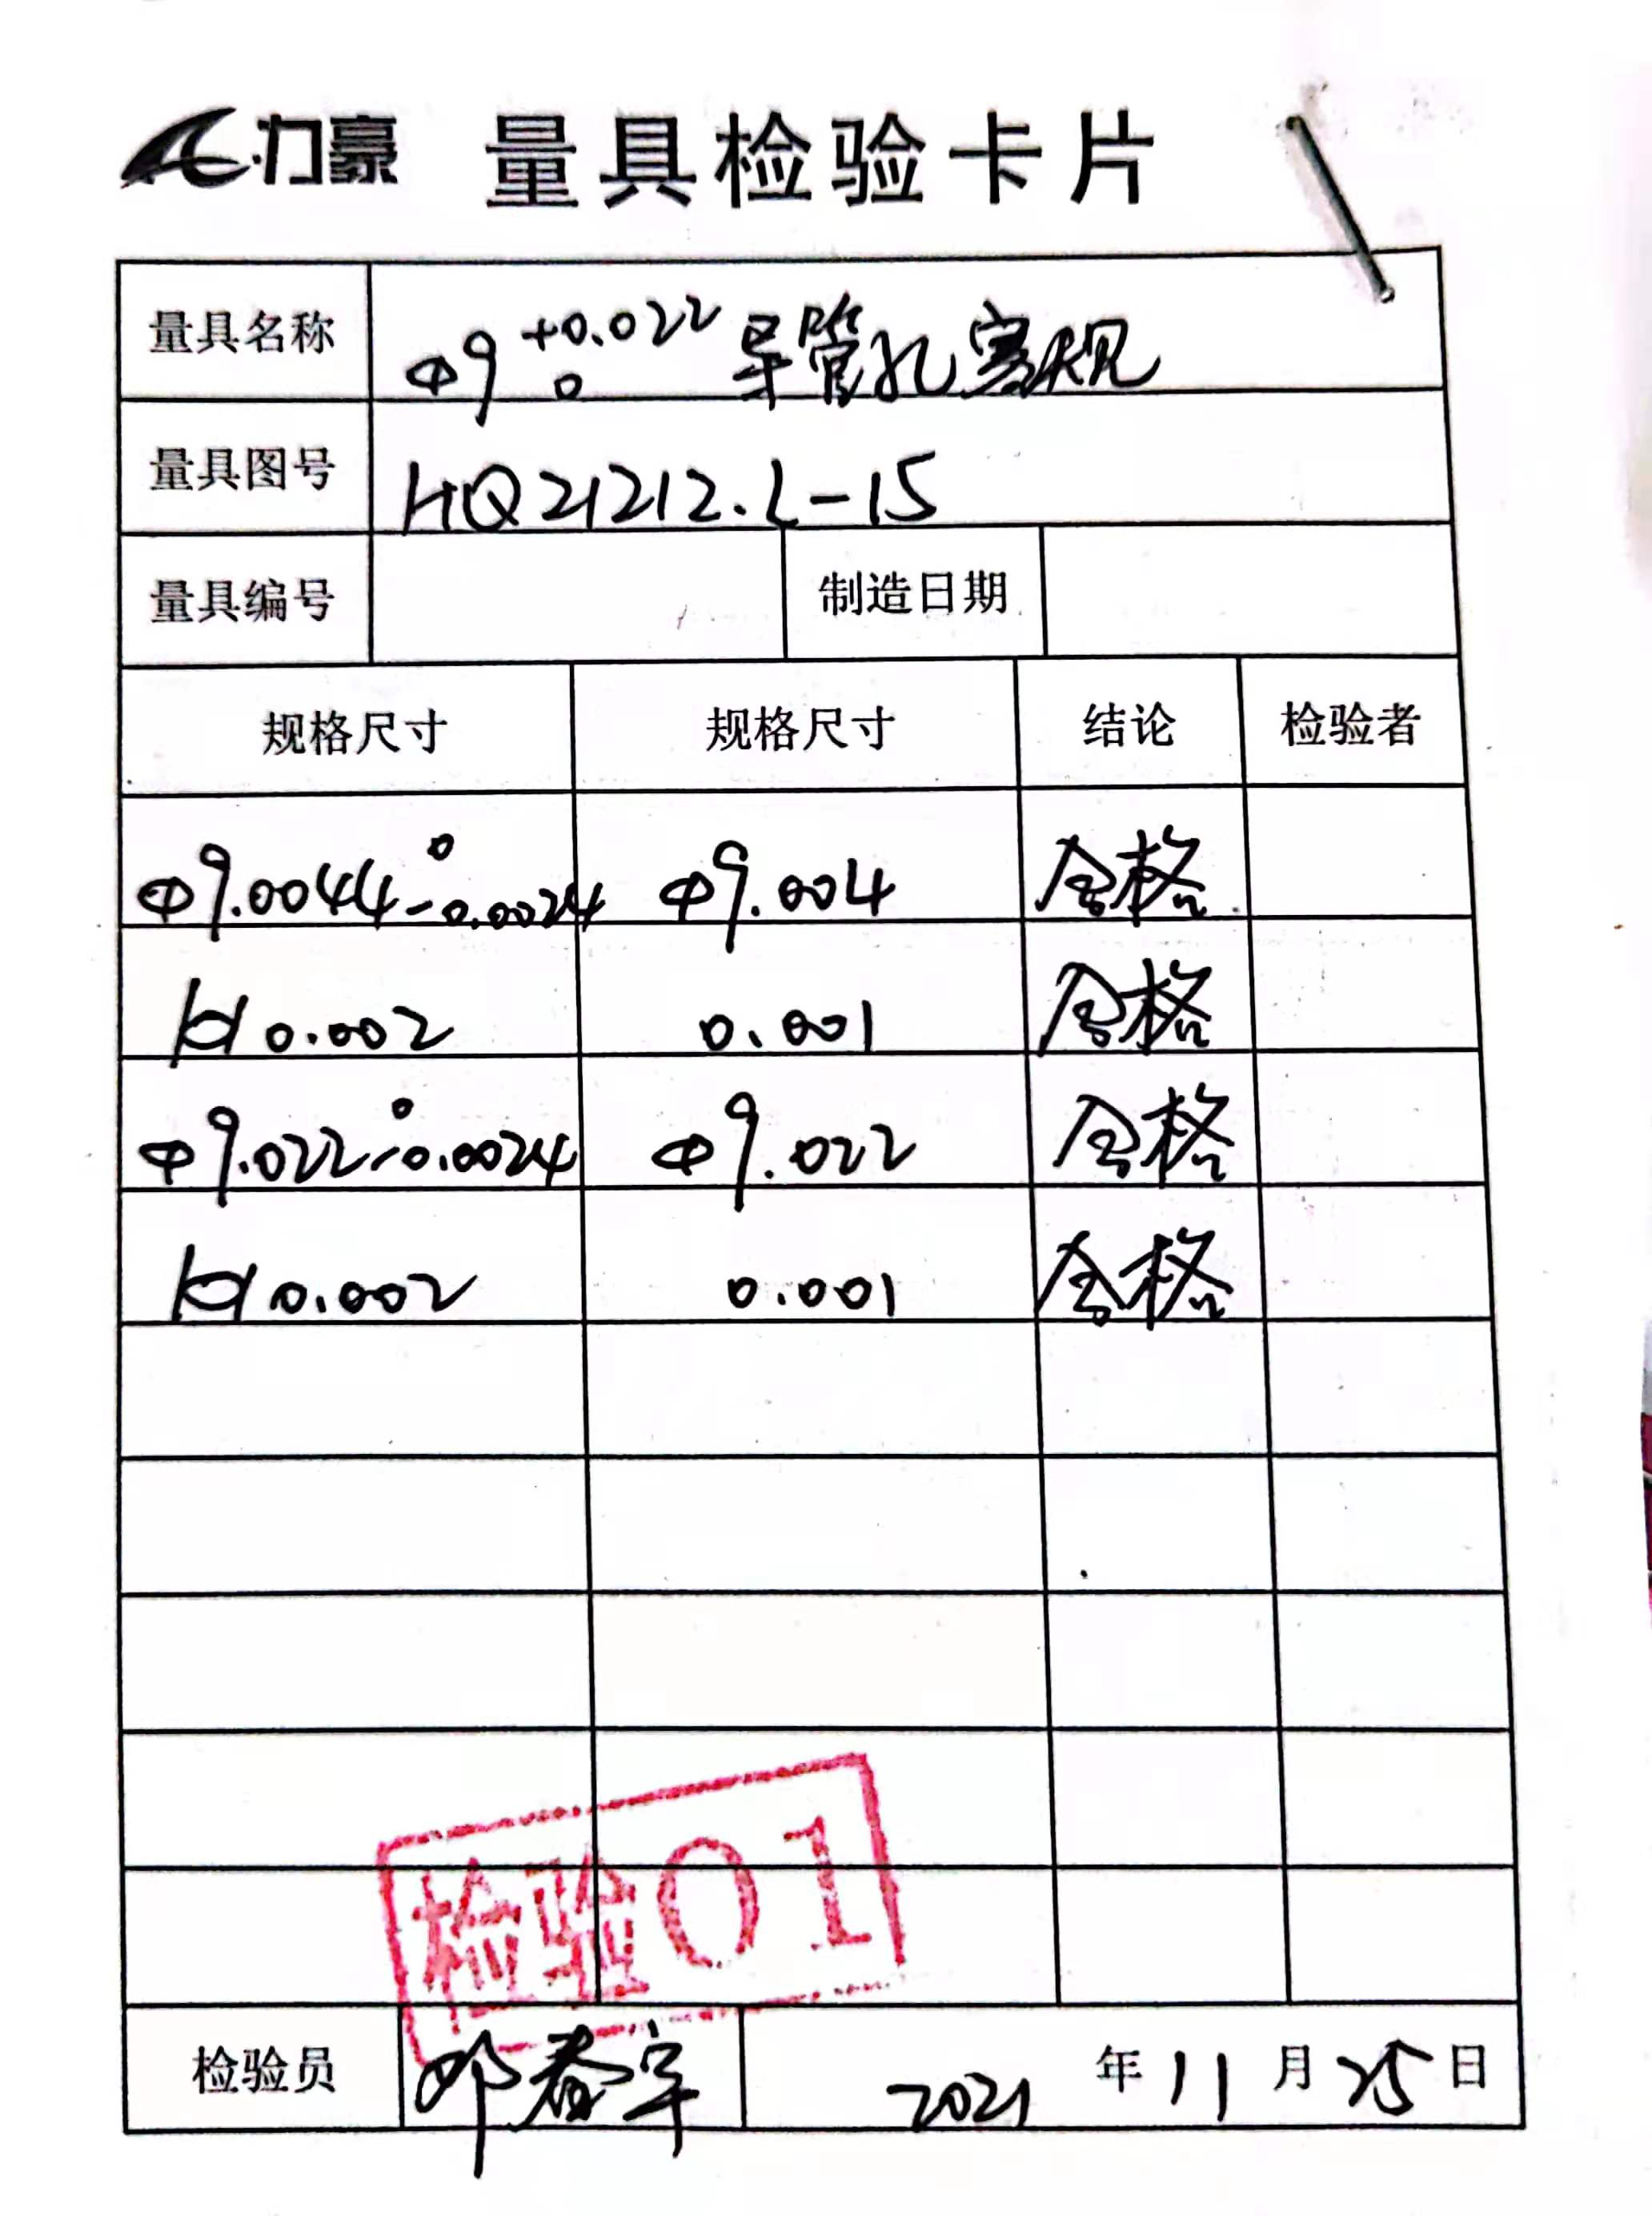 力豪 量具检验卡片
量具名称 Φ9 +0.022 0 导管孔塞规
量具图号 HQ21212.L-15
量具编号 制造日期
规格尺寸 规格尺寸 结论 检验者
Φ9.0044 0 -0.0024 Φ9.004 合格
0.002 0.001 合格
Φ9.022 0 -0.0024 Φ9.022 合格
0.002 0.001 合格
检验01
检验员 邓春宇 2021 年 11 月 25 日